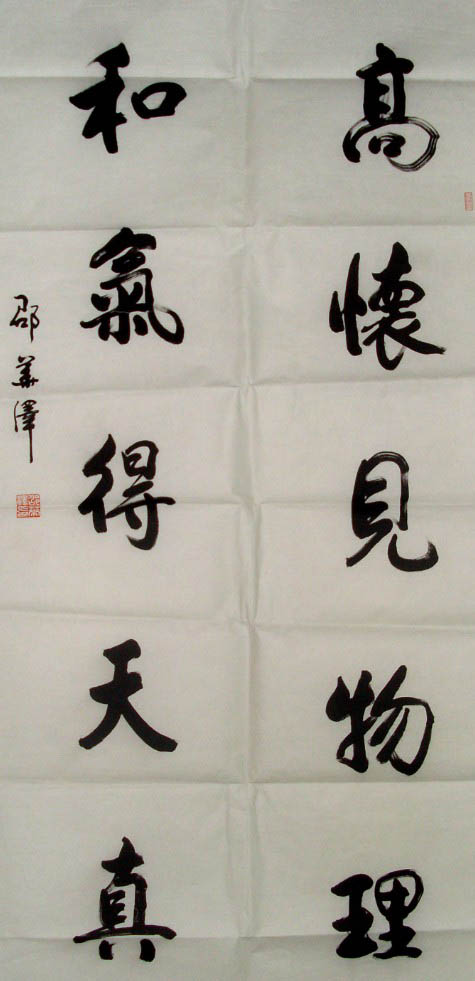 高懷見物理
和氣得天真
邵華澤